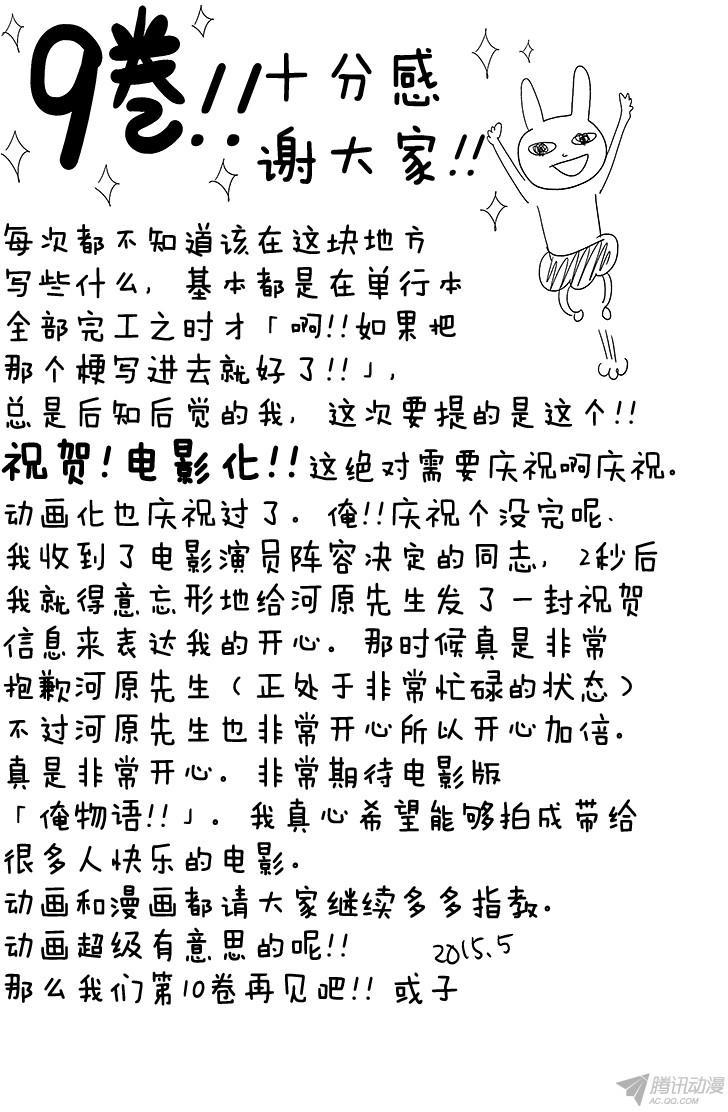 9卷!!十分感
谢大家!!
每次都不知道该在这块地方
写些什么, 基本都是在单行本
全部完工之时才「啊!!如果把
那个梗写进去就好了!!」,
总是后知后觉的我, 这次要提的是这个!!
祝贺!电影化!!这绝对需要庆祝啊庆祝。
动画化也庆祝过了。俺!!庆祝个没完呢、
我收到了电影演员阵容决定的同志, 2秒后
我就得意忘形地给河原先生发了一封祝贺
信息来表达我的开心。那时候真是非常
抱歉河原先生(正处于非常忙碌的状态)
不过河原先生也非常开心所以开心加倍。
真是非常开心。非常期待电影版
「俺物语!!」。我真心希望能够拍成带给
很多人快乐的电影。
动画和漫画都请大家继续多多指教。
动画超级有意思的呢!!
2015.5
那么我们第10卷再见吧!! 或子
腾讯动漫
AC.QQ.COM